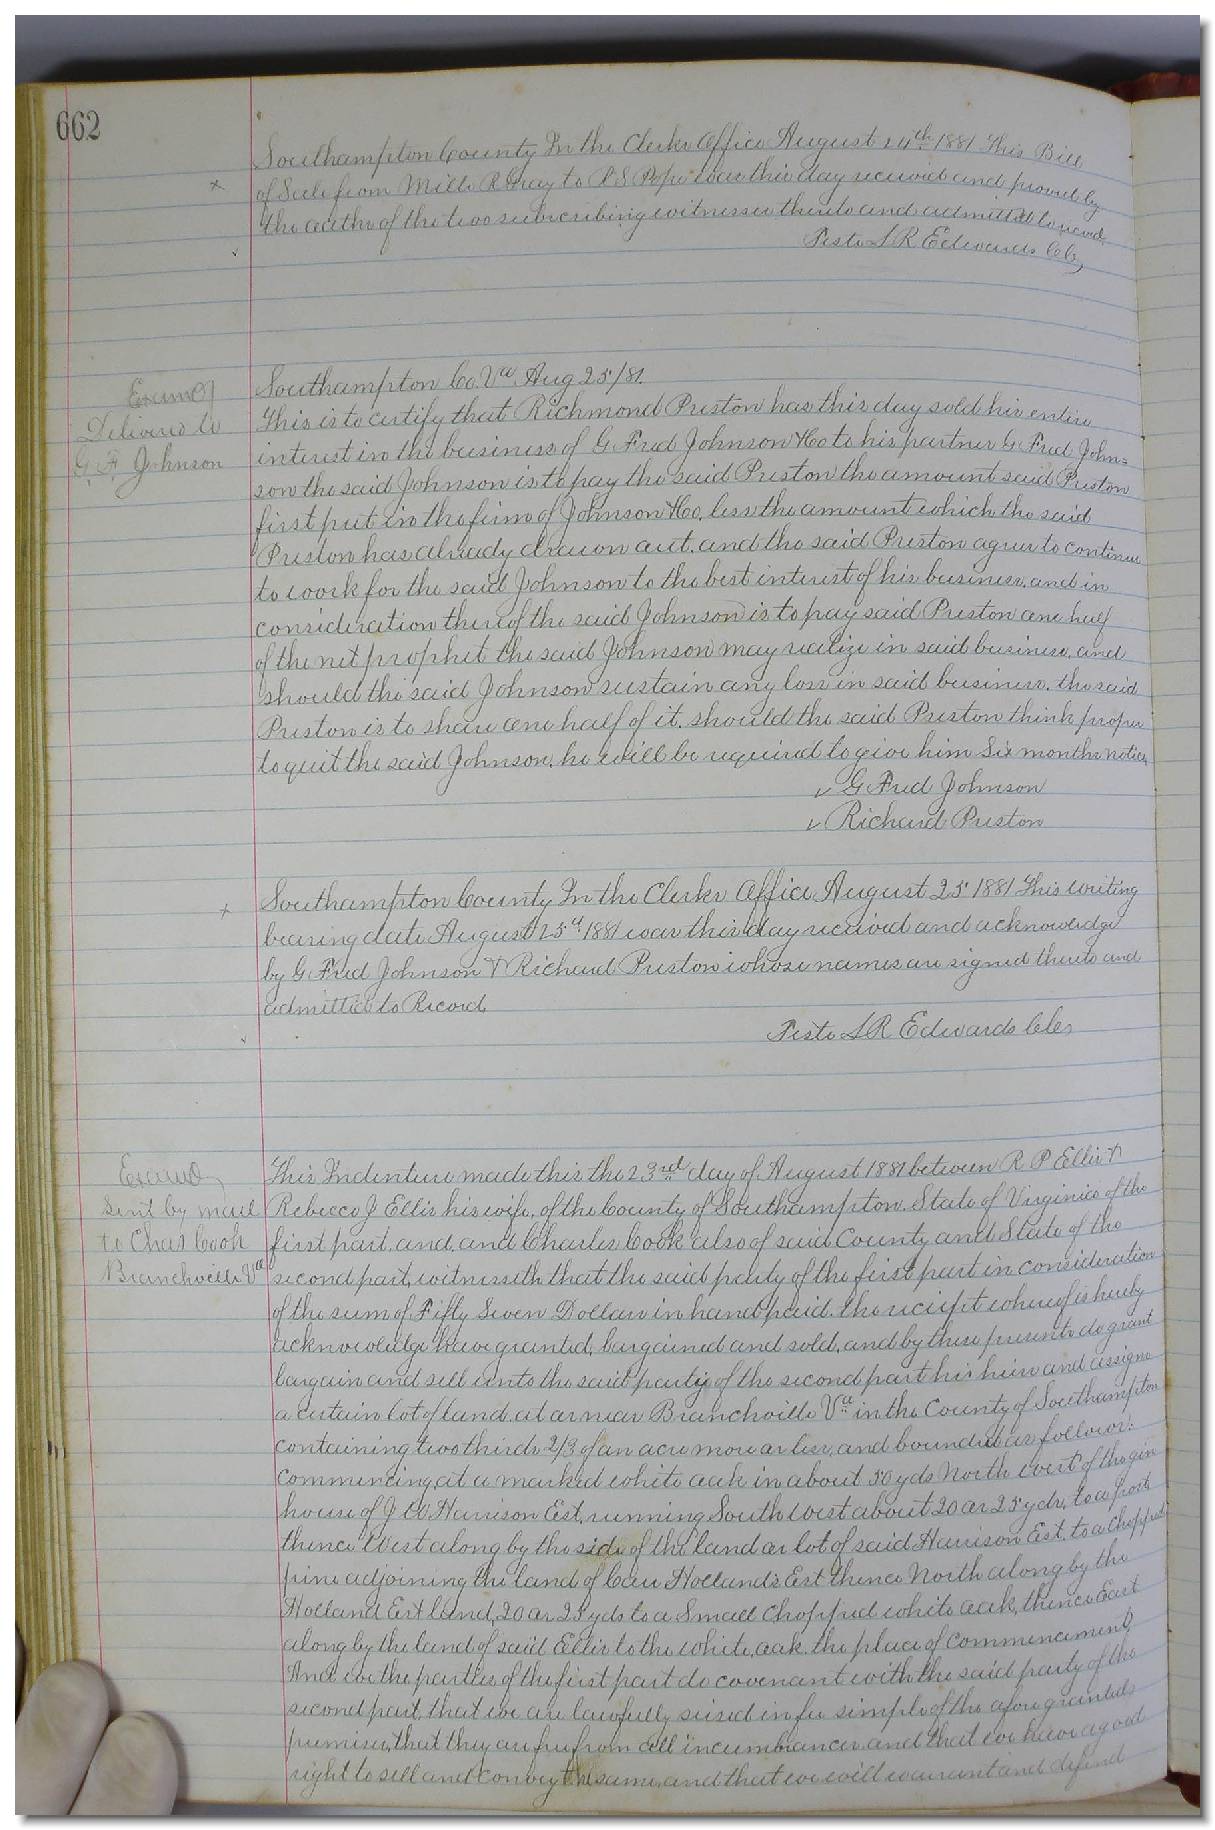 662
Southampton County In the Clerks Office August 24th 1881 This Bill
of Sale from Mills Ramay to R S Pope was this day received and proved by
the oaths of the two subscribing witnesses thereto and admitted to record
Teste L R Edwards Clk
Examd
Delivered to
G. F. Johnson
Southampton Co. Va. Aug 25/81.
This is to certify that Richmond Preston has this day sold his entire
interest in the business of G. Fred Johnson & Co to his partner G. Fred John=
son the said Johnson is to pay the said Preston the amount said Preston
first put in the firm of Johnson & Co. less the amount which the said
Preston has already drawn out. and the said Preston agrees to continue
to work for the said Johnson to the best interest of his business. and in
consideration thereof the said Johnson is to pay said Preston one half
of the net prophet the said Johnson may realize in said business, and
should the said Johnson sustain any loss in said business. the said
Preston is to share one half of it. should the said Preston think proper
to quit the said Johnson. he will be required to give him Six months notice
G Fred Johnson
Richard Preston
Southampton County In the Clerks Office August 25 1881 This writing
bearing date August 25th 1881 was this day received and acknowledge
by G. Fred Johnson & Richard Preston whose names are signed thereto and
admitted to Record
Teste L R Edwards Clk
Examd
Sent by mail
to Chas Cook
Branchville Va
This Indenture made this the 23rd day of August 1881 between R P Ellis &
Rebecca J Ellis his wife, of the County of Southampton. State of Virginia of the
first part. and, and Charles Cook also of said County and State of the
second part, witnesseth that the said party of the first part in consideration
of the sum of Fifty Seven Dollars in hand paid. the reciept whereof is hereby
acknowledge have granted, bargained and sold, and by these presents do grant
bargain and sell unto the said party of the second part his heirs and assigns
a certain lot of land at or near Branchville Va in the County of Southampton
containing two thirds 2/3 of an acre more or less, and bounded as follows:
Commencing at a marked white oak in about 50 yds North west of the gin
house of J W Harrison Est. running South West about 20 or 25 yds, to a post
thence West along by the side of the land or lot of said Harrison Est. to a Chopped
pine adjoining the land of Holland's Est thence North along by the
Holland Est land, 20 or 25 yds to a Small Chopped white oak, thence East
along by the land of said Ellis to the white, oak. the place of Commencement,
And we the parties of the first part do covenant with the said party of the
second part, that we are lawfully seised in fee simple of the afore granted
premises, that they are free from all incumbrances and that we have a good
right to sell and convey the same, and that we will warrant and defend